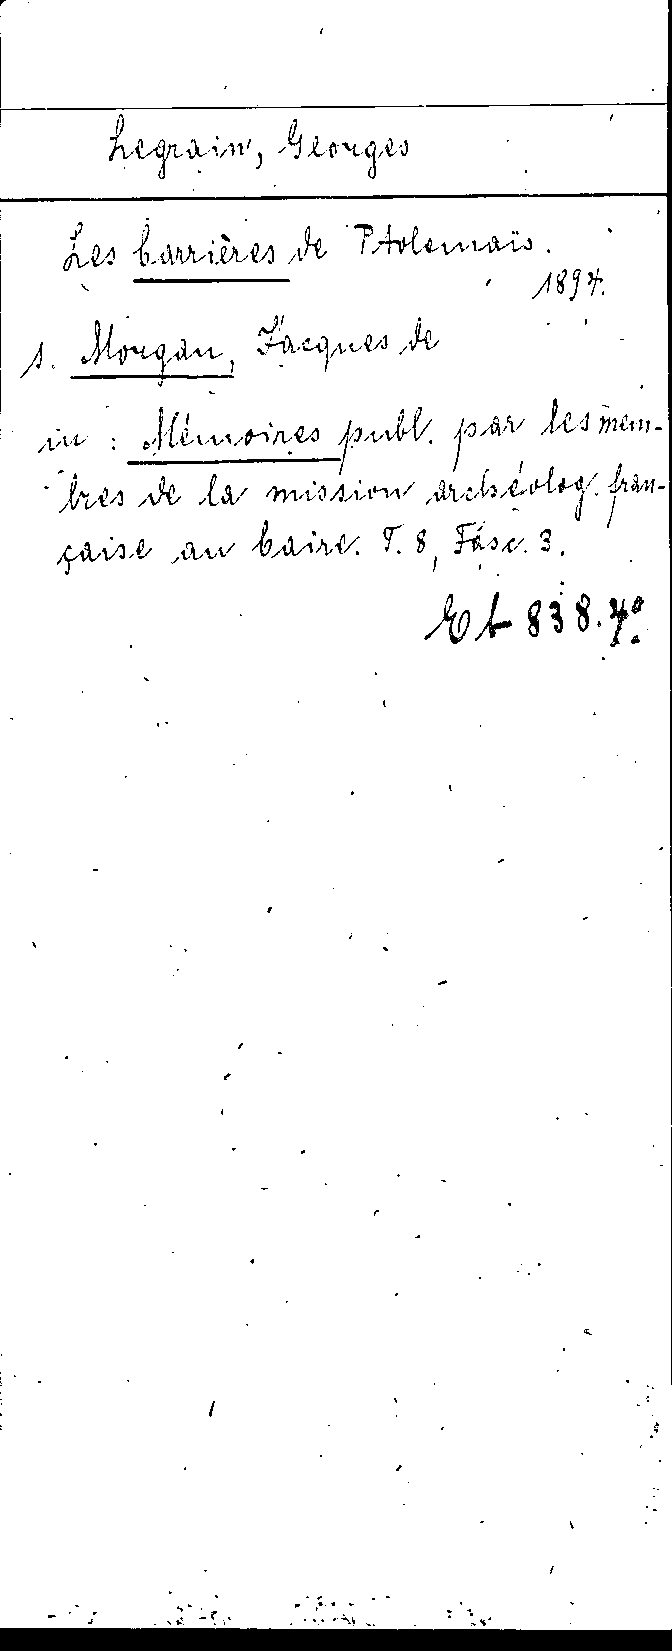 Legrain, Georges
Les barrières de Ptolemaïs.
1894.
s. Morgan, Jacques de
in: Mémoires publ. par les mem-
bres de la mission archéolog. fran-
çaise au Caire. T. 8, Fasc. 3.
Et 838. 4°